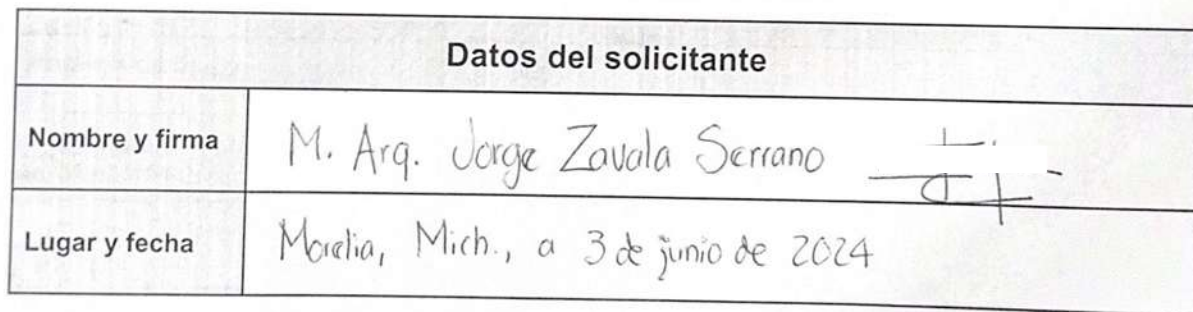 Datos del solicitante
Nombre y firma M. Arq. Jorge Zavala Serrano
Lugar y fecha Morelia, Mich., a 3 de junio de 2024